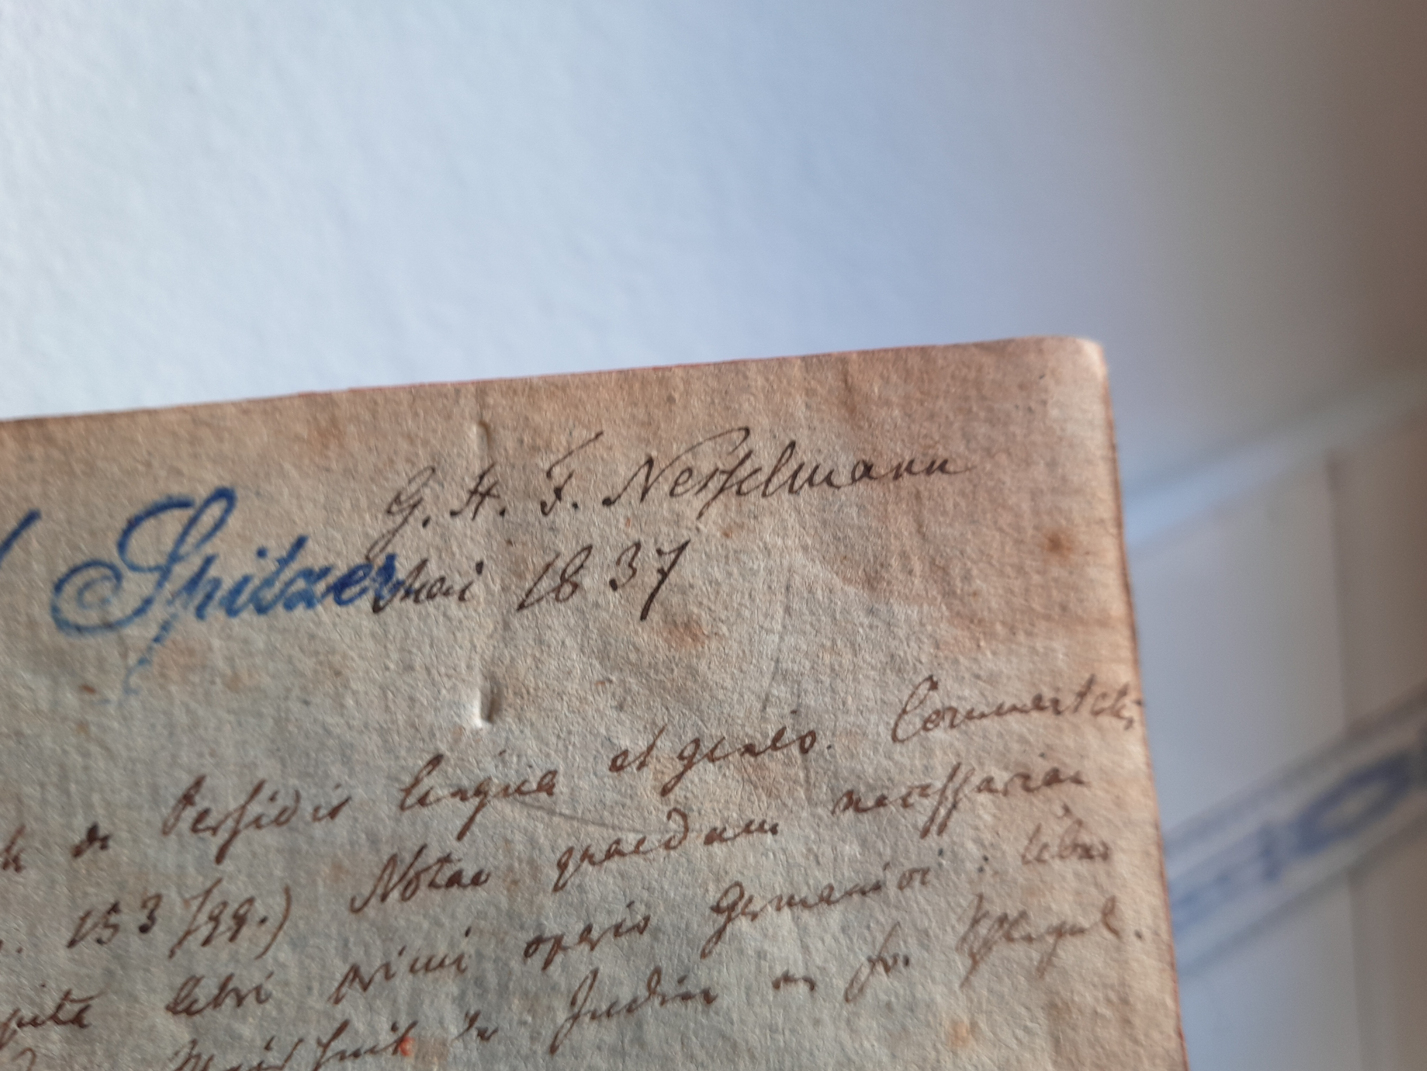 G. H. F. Nesselmann
Spitzer
Mai 1837
de Persidis lingua et genio. Commentat:
153 sqq.) Notae quaedam necessariae
libri primi operis Germanici: Ueber
Indier v. Fr. Schlegel.